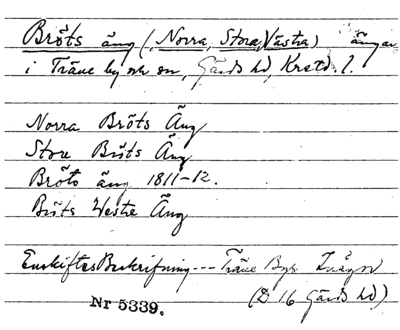 Bröts äng (Norra, Stora, Västra) ängar
i Träne by och sn, Gärds hd, Krstd. l.
Norra Bröts Äng
Stora Bröts Äng
Bröts äng 1811-12.
Bröts Westre Äng
EnskiftesBeskrifning --- Träne Bys
(D 16 Gärds hd)
Nr 5339.